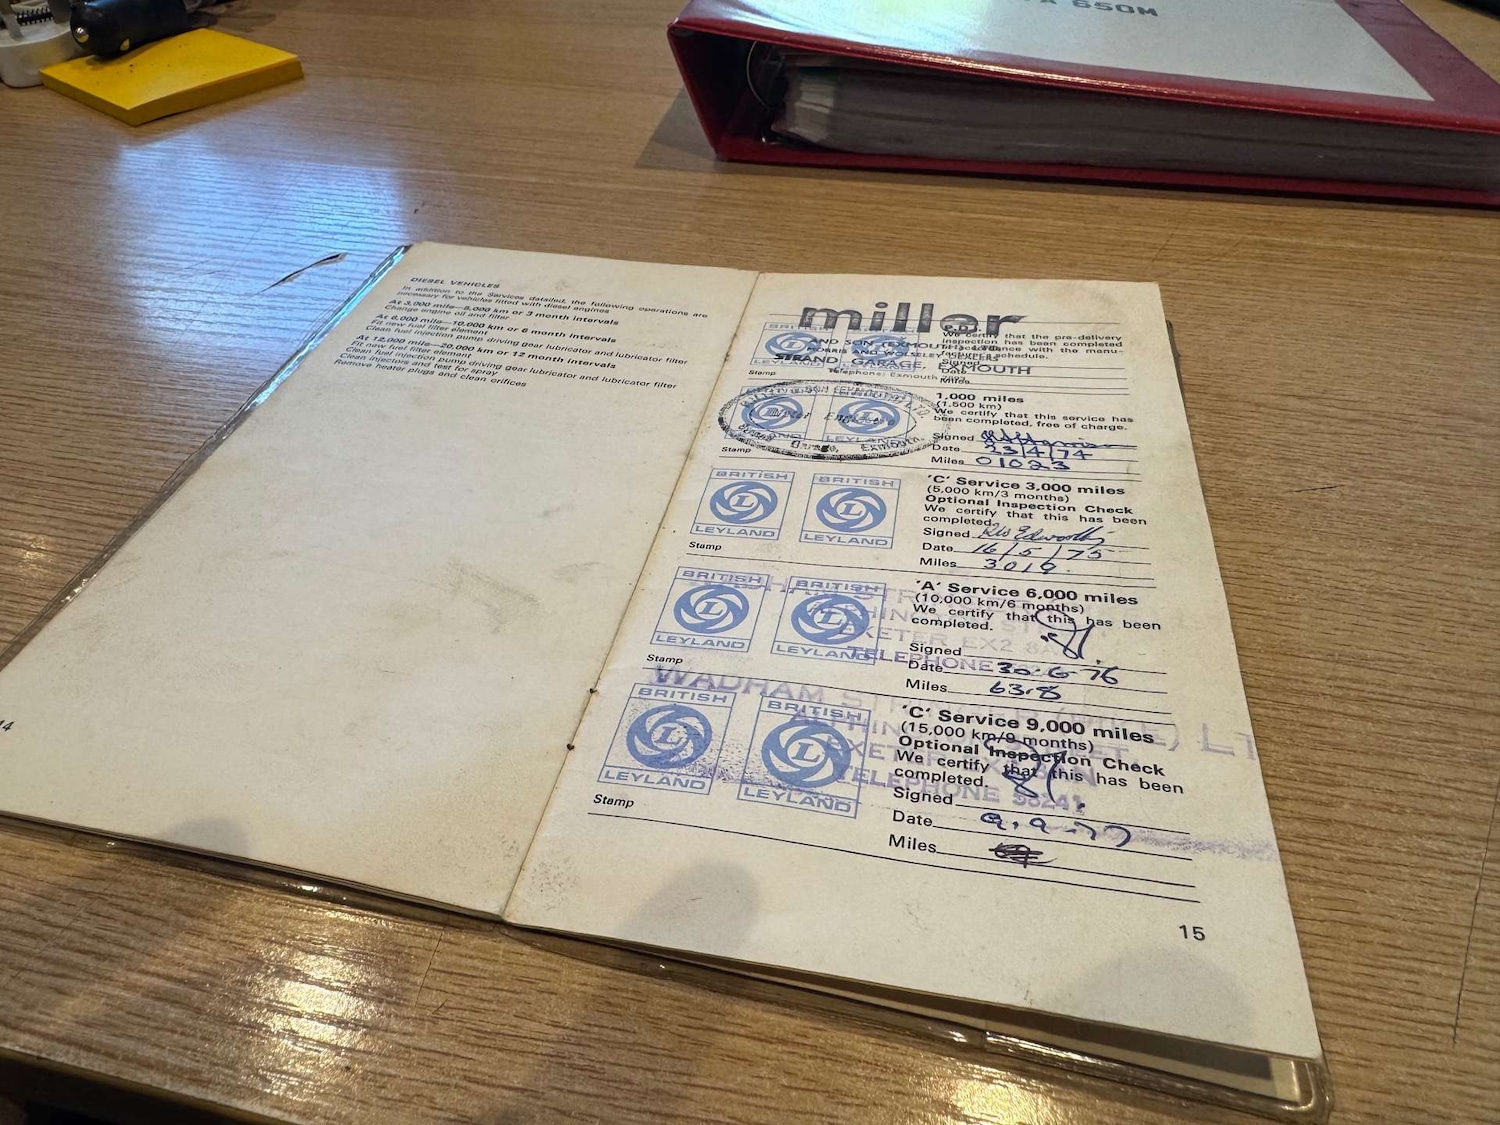 650M
DIESEL VEHICLES
In addition to the Services detailed, the following operations are
necessary for vehicles fitted with diesel engines
At 3,000 mile—5,000 km or 3 month intervals
Change engine oil and filter
At 6,000 mile—10,000 km or 6 month intervals
Fit new fuel filter element
Clean fuel injection pump driving gear lubricator and lubricator filter
At 12,000 mile—20,000 km or 12 month intervals
Fit new fuel filter element
Clean fuel injection pump driving gear lubricator and lubricator filter
Clean injectors and test for spray
Remove heater plugs and clean orifices
14
miller
AND SON (EXMOUTH) LTD
MORRIS AND WOLSELEY
STRAND GARAGE, EXMOUTH
Telephone: Exmouth
P.D.I.
We certify that the pre-delivery
inspection has been completed
in accordance with the manu-
facturer's schedule.
Signed
Date
Miles
Stamp
BRITISH LEYLAND
BRITISH LEYLAND
1,000 miles
(1,500 km)
We certify that this service has
been completed, free of charge.
Signed
Date 23/4/74
Miles 01023
Stamp
Exmouth.
BRITISH LEYLAND
BRITISH LEYLAND
'C' Service 3,000 miles
(5,000 km/3 months)
Optional Inspection Check
We certify that this has been
completed.
Signed
Date 16/5/75
Miles 3019.
Stamp
BRITISH LEYLAND
BRITISH LEYLAND
'A' Service 6,000 miles
(10,000 km/6 months)
We certify that this has been
completed.
Signed
Date 30.6.76
Miles
Stamp
EXETER EX2 8A
TELEPHONE
BRITISH LEYLAND
BRITISH LEYLAND
'C' Service 9,000 miles
(15,000 km/9 months)
Optional Inspection Check
We certify that this has been
completed.
Signed
Date 9.9.77
Miles
Stamp
WADHAM
EXETER
TELEPHONE 56241
15